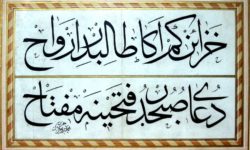 خزائن كم اكا طالبدر ارواح
دعای صبحدر فتحینه مفتاح